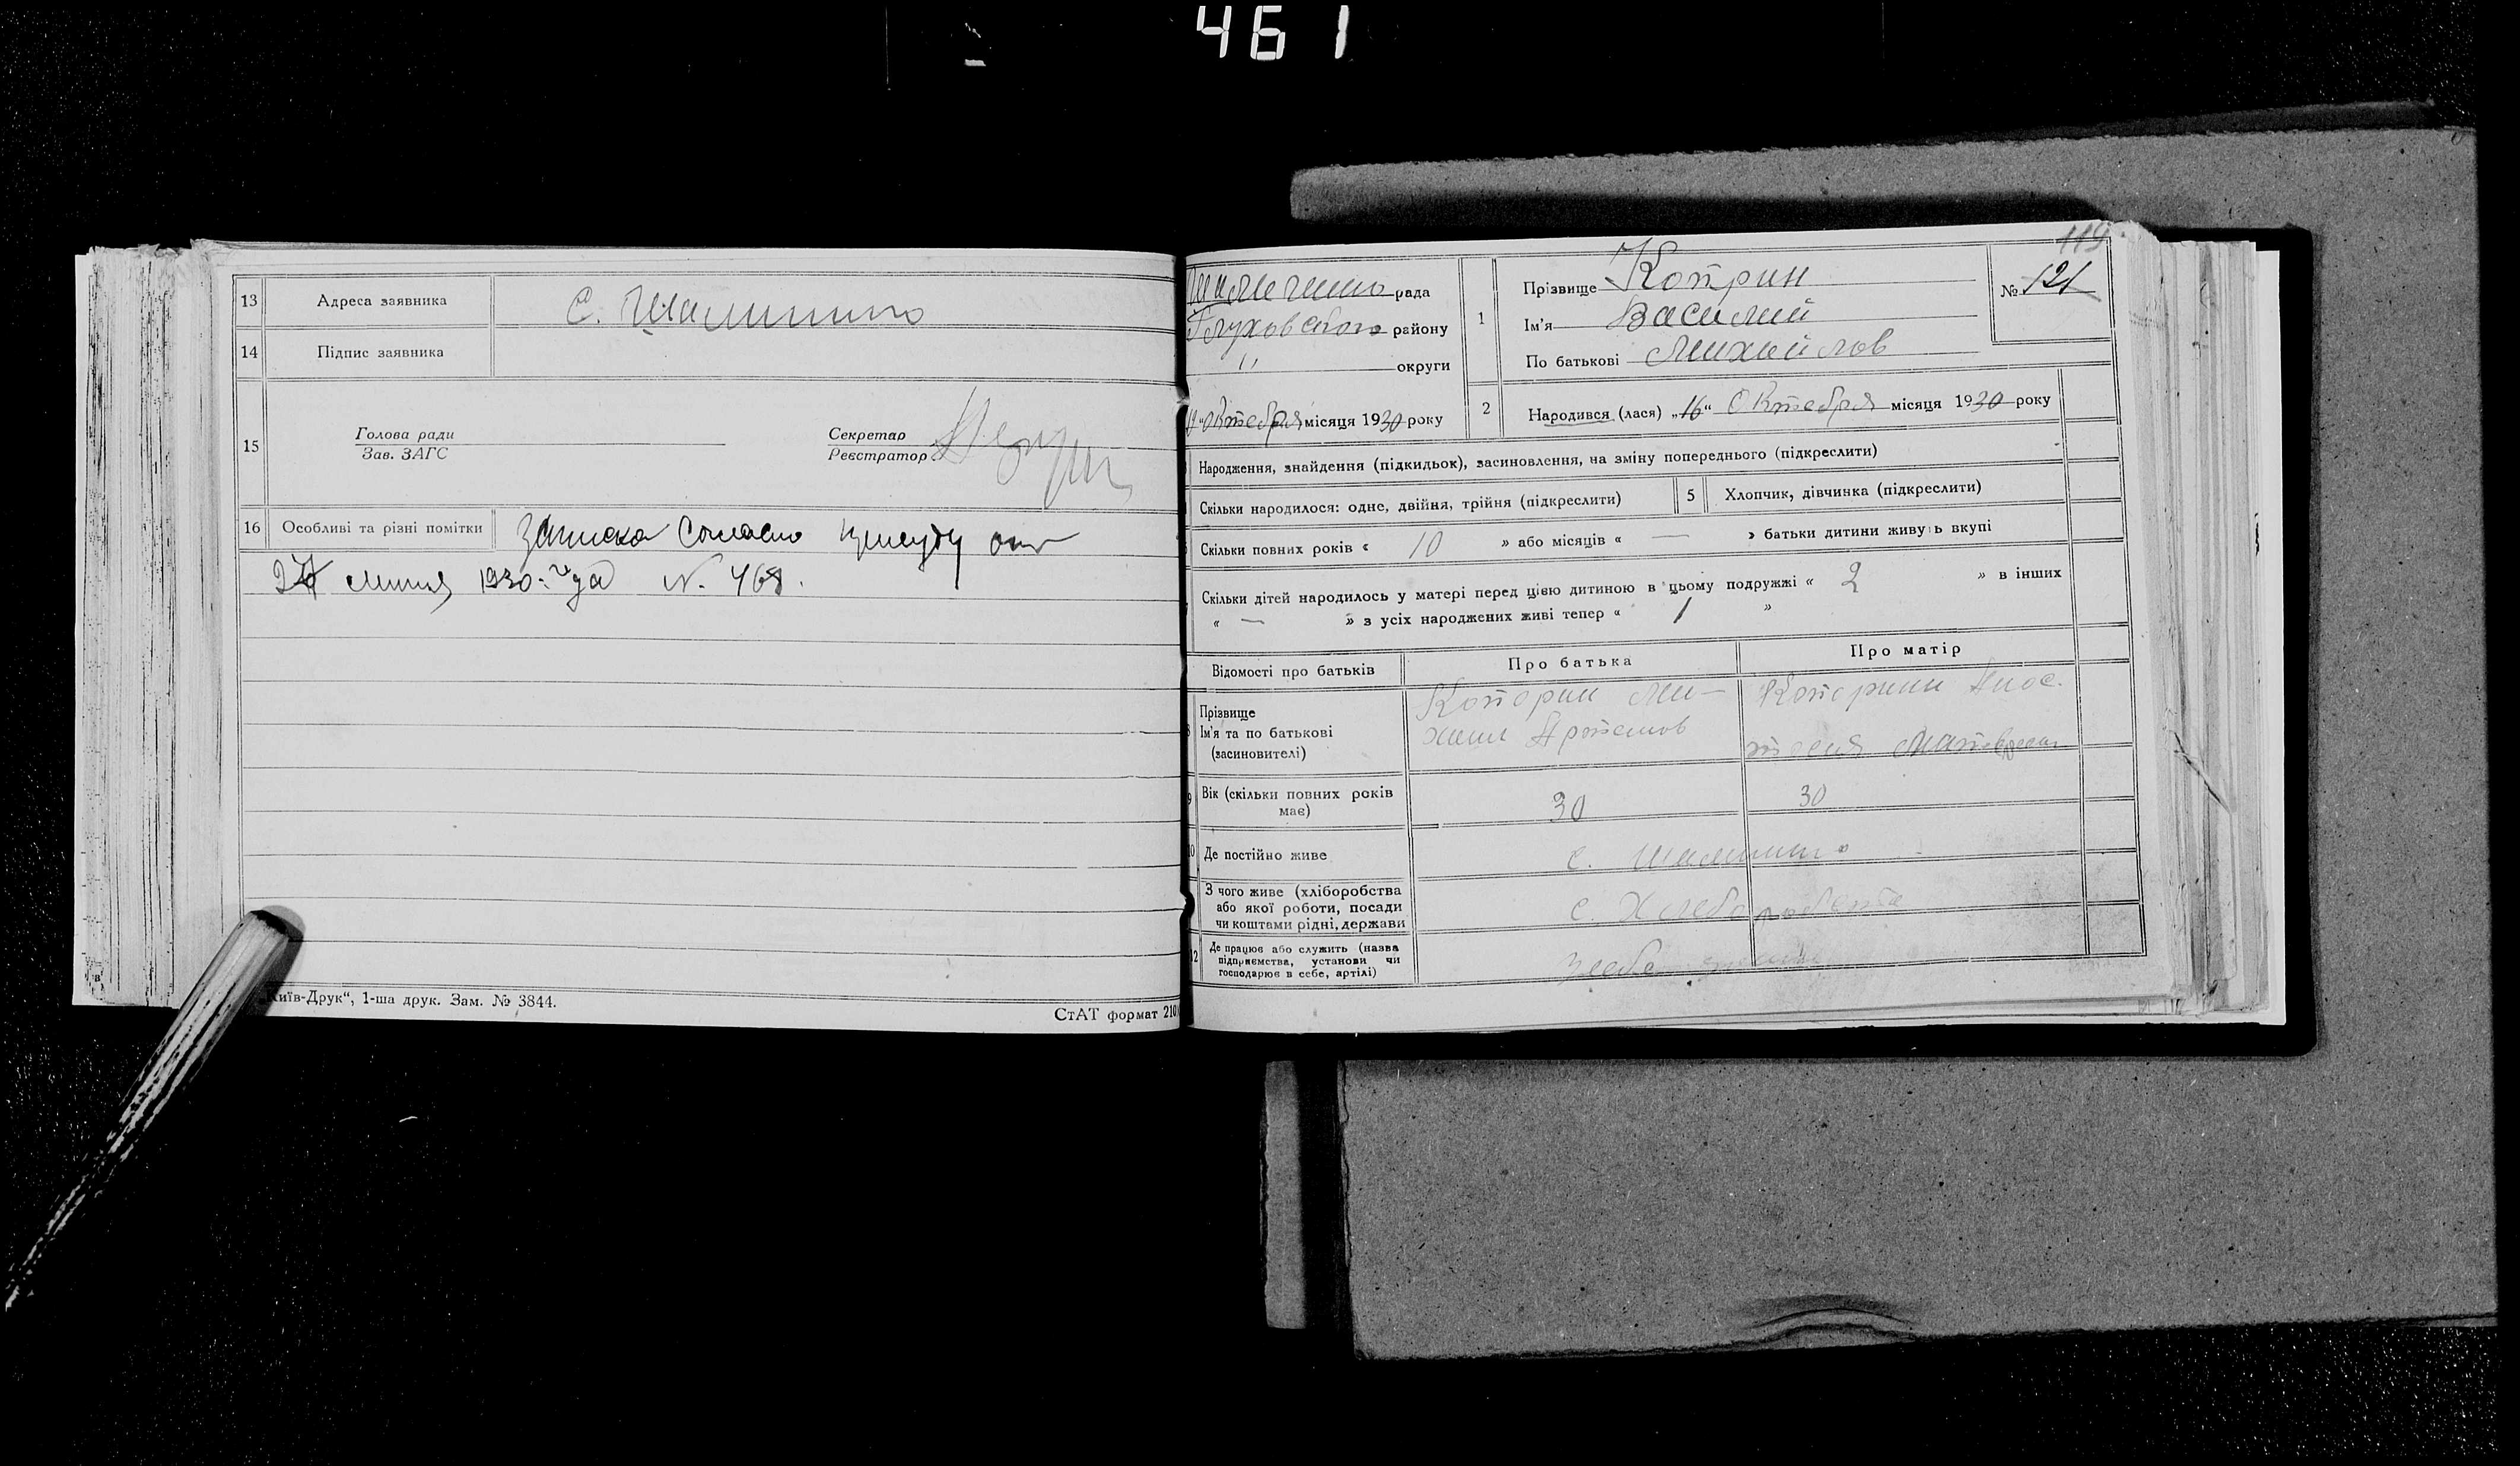 461
13 Адреса заявника С. Шалимино
14 Підпис заявника
15 Голова ради
Зав. ЗАГС
Секретар
Реєстратор
16 Особливі та різні помітки Записка Согласно
1930 года N. 468.
Київ-Друк“, 1-ша друк. Зам. № 3844.
СтАТ формат 210
119
рада
Глуховского району
" округи
Октебря місяця 1930 року
1 Прізвище Котрин
Ім'я Василий
По батькові Михайлов
№ 121
2 Народився (лася) „16“ Октебря місяця 1930 року
Народження, знайдення (підкидьок), засиновлення, на зміну попереднього (підкреслити)
Скільки народилося: одне, двійня, трійня (підкреслити)
5 Хлопчик, дівчинка (підкреслити)
Скільки повних років « 10 » або місяців « — » батьки дитини живуть вкупі
Скільки дітей народилось у матері перед цією дитиною в цьому подружжі « 2 » в інших
« — » з усіх народжених живі тепер « 1 »
Відомості про батьків
Про батька
Про матір
Прізвище
Ім'я та по батькові
(засиновителі)
Которин Ми-
хаил Артемов
Которини Анос.
9 Вік (скільки повних років
має)
30
30
10 Де постійно живе
с. Шалимино
З чого живе (хліборобства
або якої роботи, посади
чи коштами рідні, держави
12 Де працює або служить (назва
підприємства, установи чи
господарює в себе, артілі)